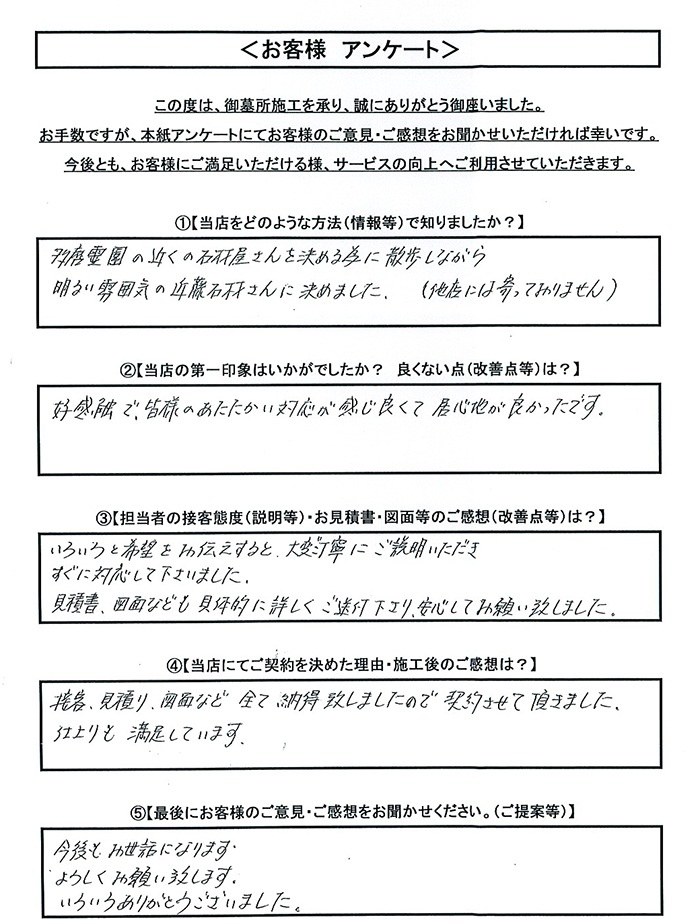 ＜お客様 アンケート＞
この度は、御墓所施工を承り、誠にありがとう御座いました。
お手数ですが、本紙アンケートにてお客様のご意見・ご感想をお聞かせいただければ幸いです。
今後とも、お客様にご満足いただける様、サービスの向上へご利用させていただきます。
①【当店をどのような方法（情報等）で知りましたか？】
多磨霊園の近くの石材屋さんを決める為に散歩しながら
明るい雰囲気の近藤石材さんに決めました。（他店には寄っておりません）
②【当店の第一印象はいかがでしたか？ 良くない点（改善点等）は？】
好感触で、皆様のあたたかい対応が感じ良くて居心地が良かったです。
③【担当者の接客態度（説明等）・お見積書・図面等のご感想（改善点等）は？】
いろいろと希望をお伝えすると、大変丁寧にご説明いただき
すぐに対応して下さいました。
見積書、図面なども具体的に詳しくご送付下さり、安心してお願い致しました。
④【当店にてご契約を決めた理由・施工後のご感想は？】
接客、見積り、図面など全て納得致しましたので契約させて頂きました。
仕上りも満足しています。
⑤【最後にお客様のご意見・ご感想をお聞かせください。（ご提案等）】
今後もお世話になります。
よろしくお願い致します。
いろいろありがとうございました。